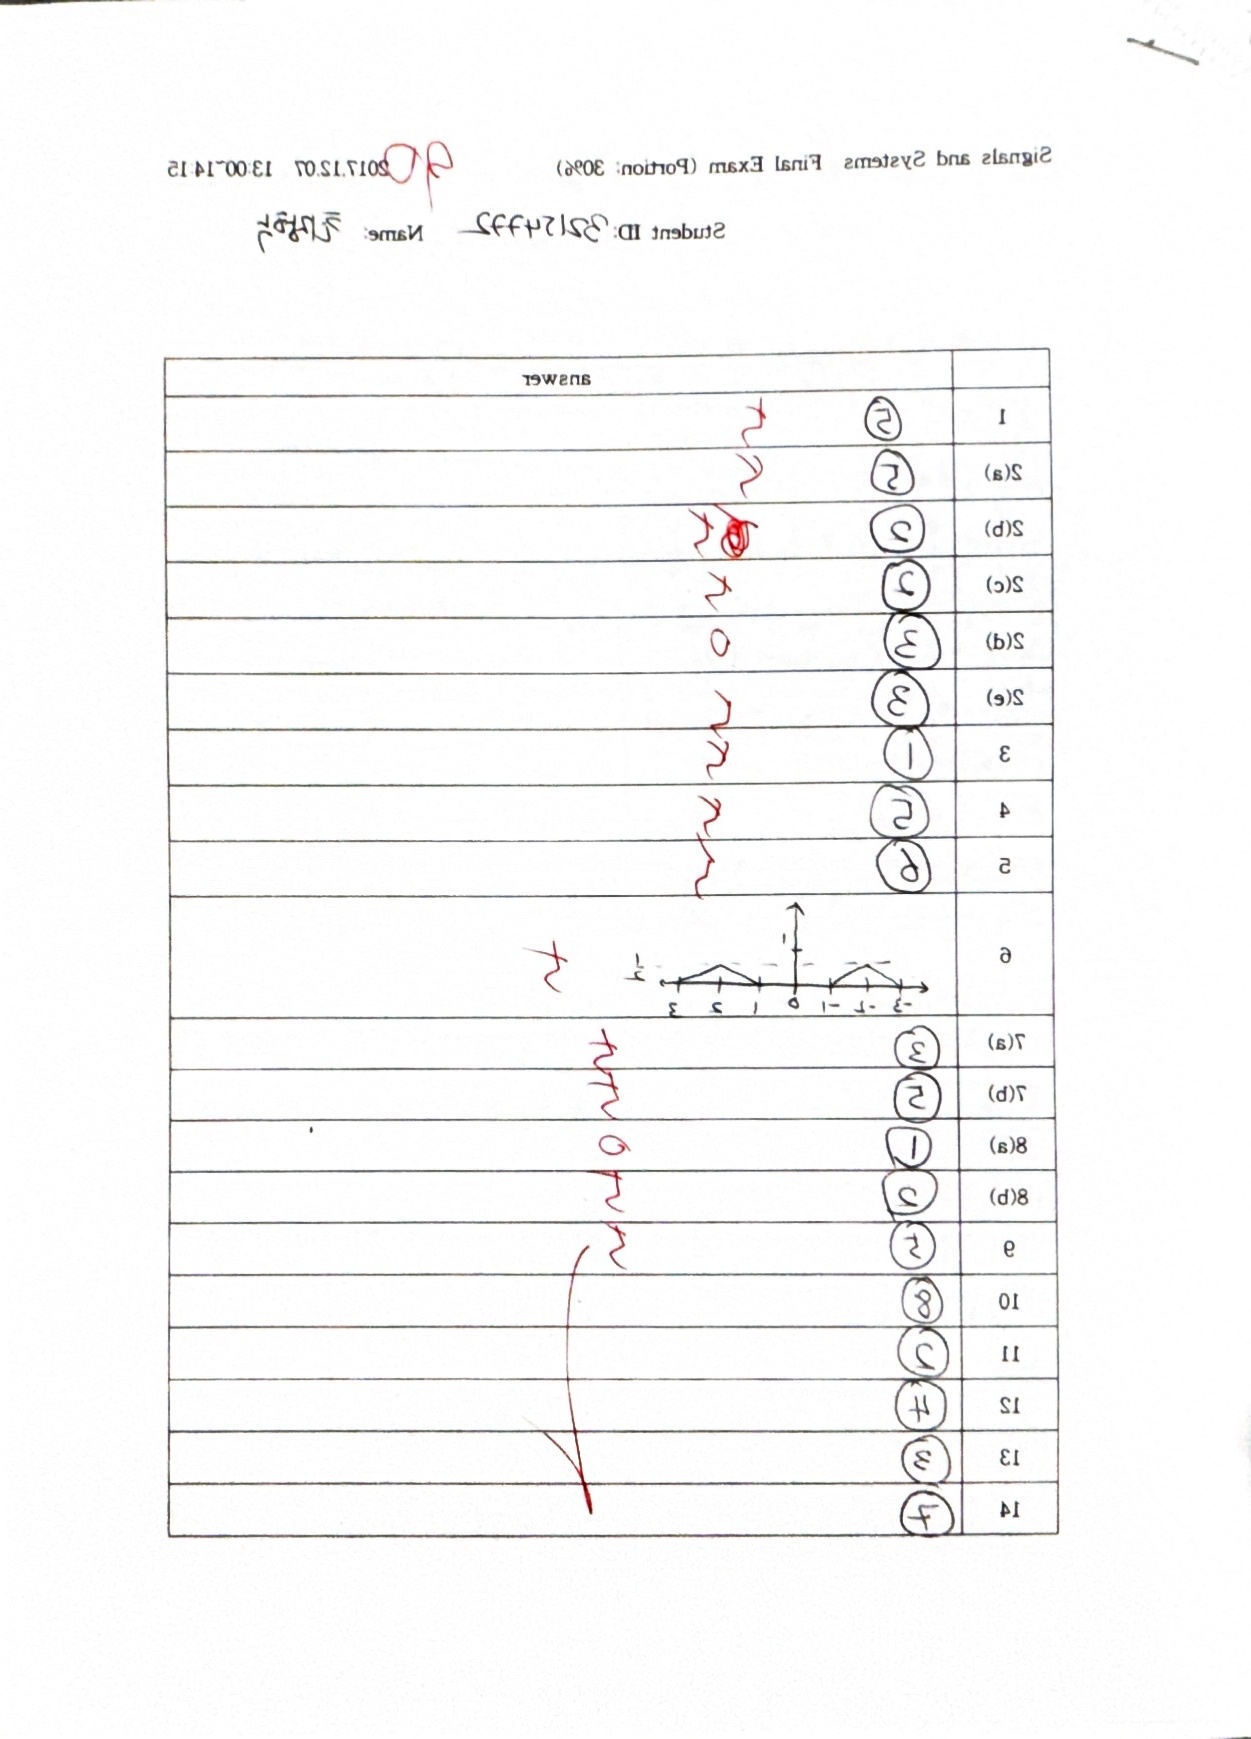 Signals and Systems Final Exam (Portion: 30%) 90 2017.12.07 13:00~14:15
Student ID: 32154772 Name:
answer
1 ⑤
2(a) ⑤
2(b) ②
2(c) ②
2(d) ③
2(e) ③
3 ①
4 ⑤
5 ⑥
6
1
-3 -2 -1 0 1 2 3
7(a) ③
7(b) ⑤
8(a) ①
8(b) ②
9 ⑤
10 ⑧
11 ②
12 ⑦
13 ③
14 ④